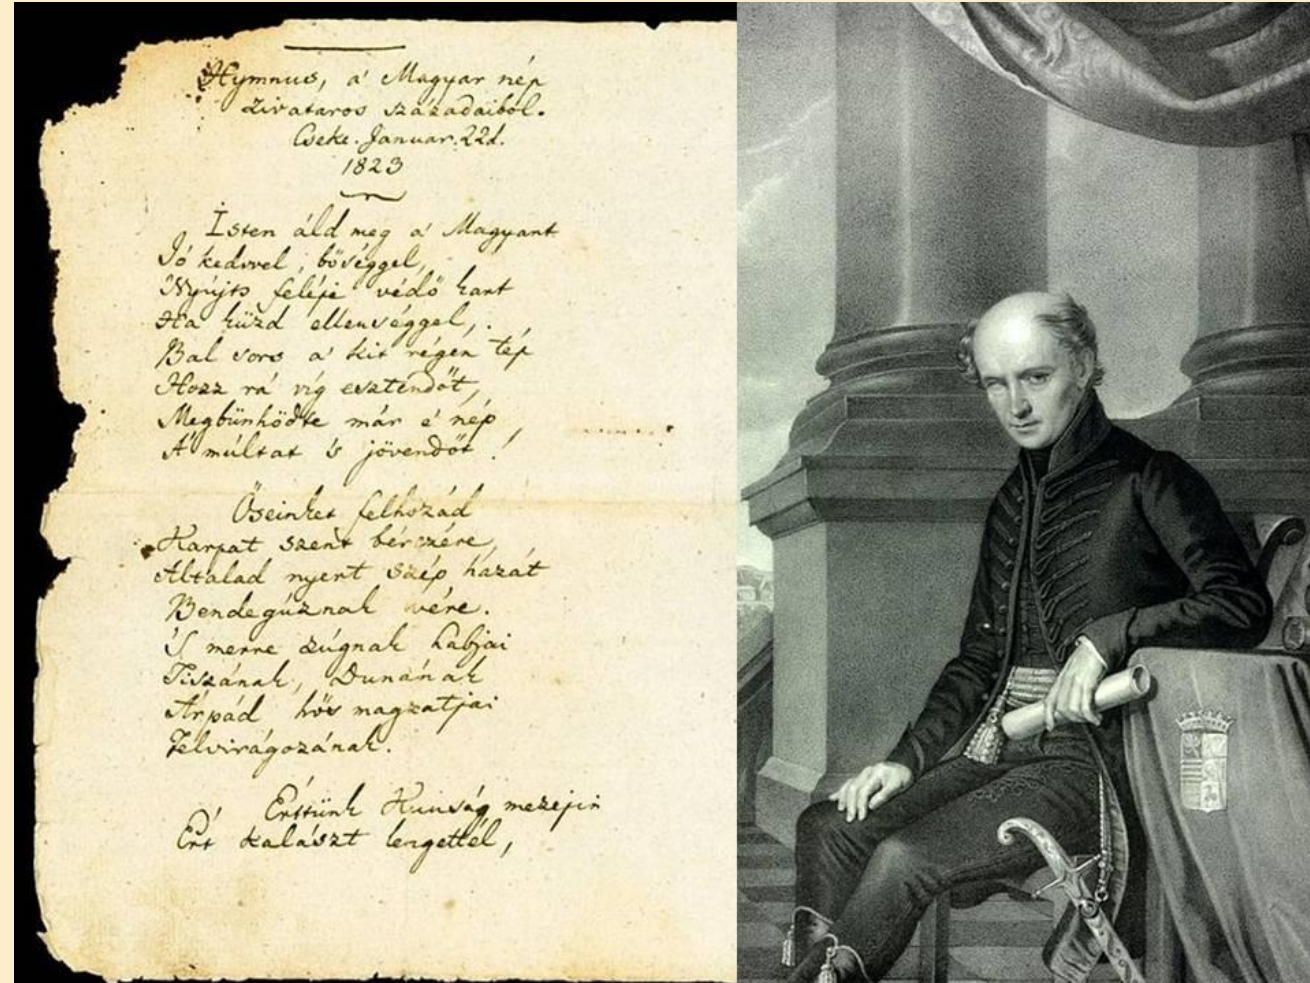 Hymnus, a' Magyar nép
zivataros századaiból.
Cseke. Januar. 22d.
1823
Isten áld meg a' Magyart
Jó kedvvel, bőséggel,
Nyújts feléje védő kart
Ha küzd ellenséggel,
Bal sors a' kit régen tép
Hozz rá víg esztendőt,
Megbűnhödte már e' nép
A' múltat 's jövendőt!
Őseinket felhozád
Kárpat szent bérczére
Általad nyert szép hazát
Bendegúznak vére.
'S merre zúgnak habjai
Tiszának, Dunának
Árpád hős magzatjai
Felvirágozának.
Értünk Kunság mezején
Ért kalászt lengettél,